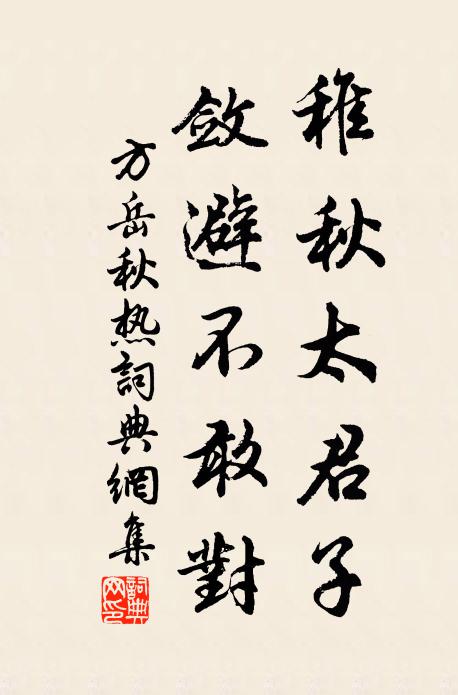 稚秋太君子
斂避不敢對
方岳秋热詞典網集
詞典网印